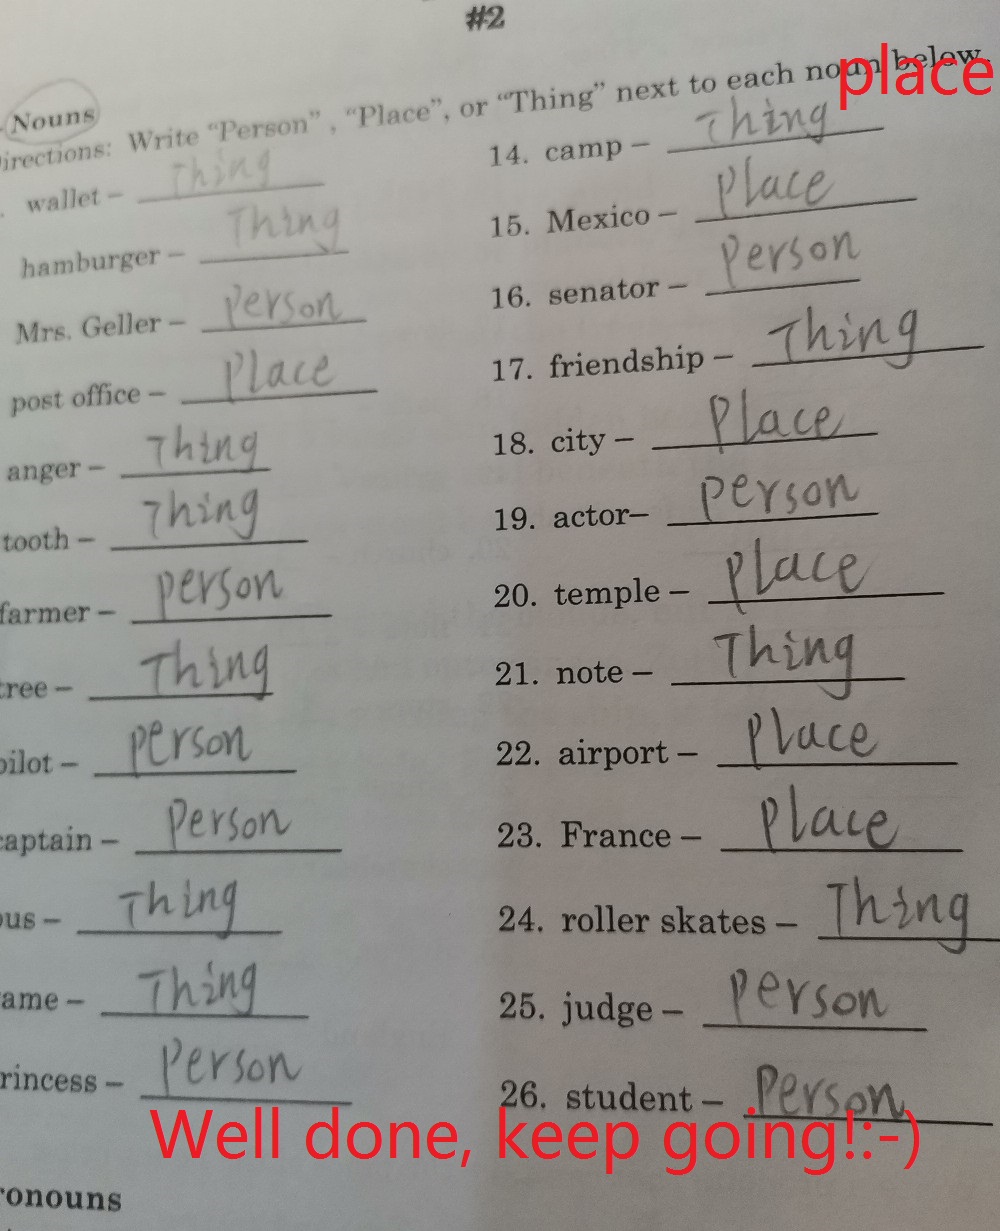 #2
Nouns
place
irections: Write "Person" , "Place", or "Thing" next to each noun below.
wallet – Thing
hamburger – Thing
Mrs. Geller – Person
post office – Place
anger – Thing
tooth – Thing
farmer – person
ree – Thing
ilot – person
aptain – Person
us – Thing
ame – Thing
rincess – Person
14. camp – Thing
15. Mexico – Place
16. senator – Person
17. friendship – Thing
18. city – Place
19. actor– person
20. temple – Place
21. note – Thing
22. airport – Place
23. France – Place
24. roller skates – Thing
25. judge – person
26. student – Person
Well done, keep going!:-)
ronouns